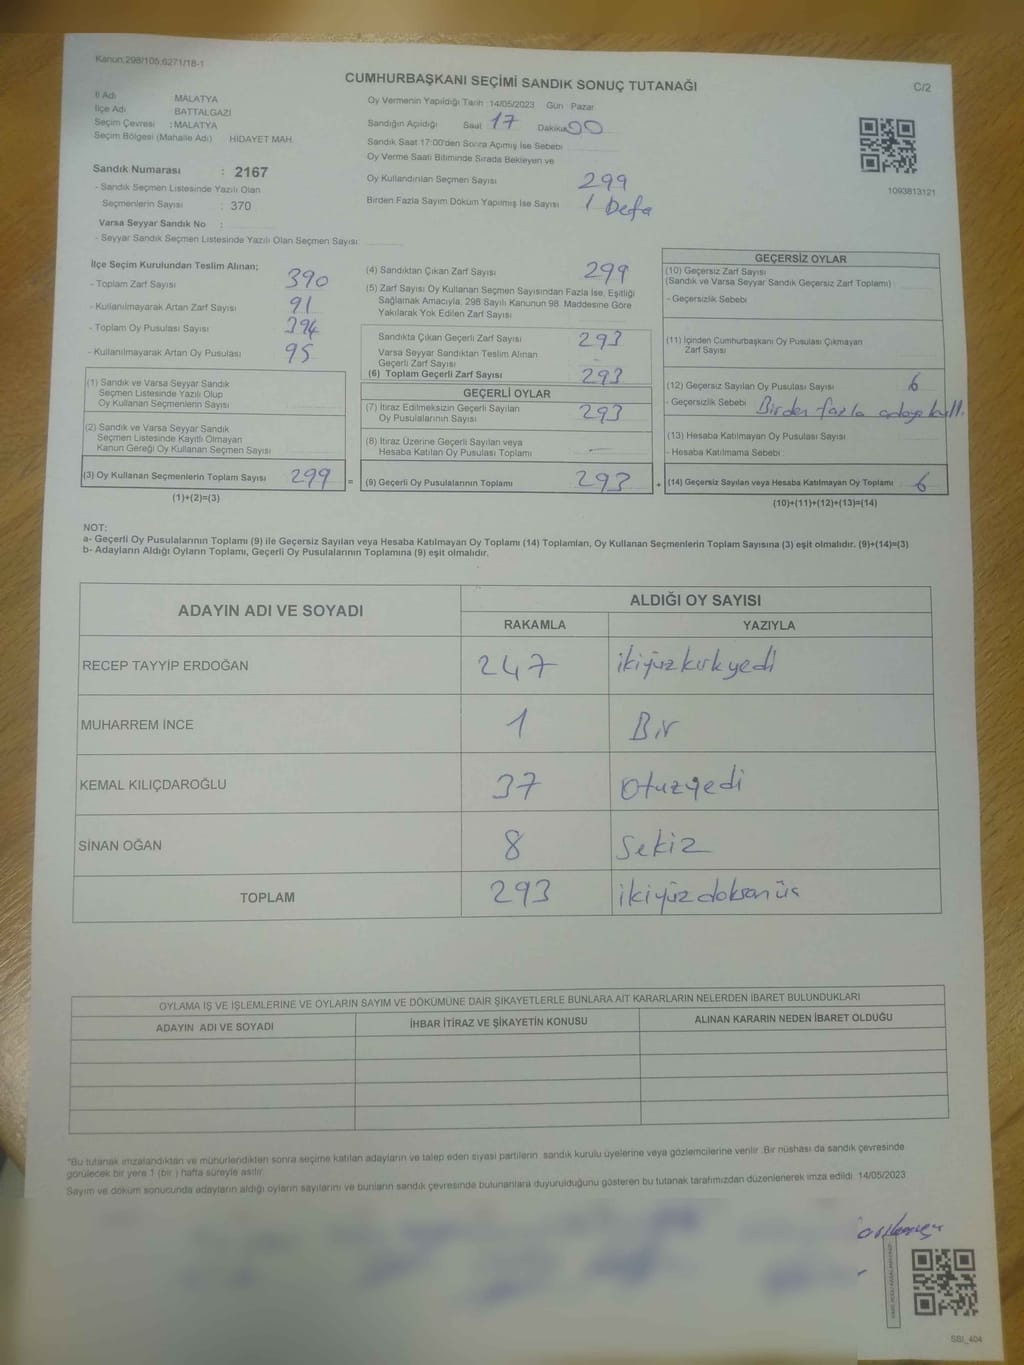 Kanun:298/105,6271/18-1
CUMHURBAŞKANI SEÇİMİ SANDIK SONUÇ TUTANAĞI
C/2
İl Adı MALATYA
İlçe Adı BATTALGAZİ
Seçim Çevresi : MALATYA
Seçim Bölgesi (Mahalle Adı) HİDAYET MAH.
Sandık Numarası : 2167
- Sandık Seçmen Listesinde Yazılı Olan
Seçmenlerin Sayısı : 370
Varsa Seyyar Sandık No :
- Seyyar Sandık Seçmen Listesinde Yazılı Olan Seçmen Sayısı:
Oy Vermenin Yapıldığı Tarih :14/05/2023 Gün Pazar
Sandığın Açıldığı Saat 17 Dakika 00
Sandık Saat 17:00'den Sonra Açımış İse Sebebi
Oy Verme Saati Bitiminde Sırada Bekleyen ve
Oy Kullandırılan Seçmen Sayısı 299
Birden Fazla Sayım Döküm Yapılmış İse Sayısı 1 Defa
1093813121
İlçe Seçim Kurulundan Teslim Alınan;
- Toplam Zarf Sayısı 390
- Kullanılmayarak Artan Zarf Sayısı 91
- Toplam Oy Pusulası Sayısı 394
- Kullanılmayarak Artan Oy Pusulası 95
(1) Sandık ve Varsa Seyyar Sandık
Seçmen Listesinde Yazılı Olup
Oy Kullanan Seçmenlerin Sayısı
(2) Sandık ve Varsa Seyyar Sandık
Seçmen Listesinde Kayıtlı Olmayan
Kanun Gereği Oy Kullanan Seçmen Sayısı
(3) Oy Kullanan Seçmenlerin Toplam Sayısı 299 =
(1)+(2)=(3)
(4) Sandıktan Çıkan Zarf Sayısı 299
(5) Zarf Sayısı Oy Kullanan Seçmen Sayısından Fazla İse, Eşitliği
Sağlamak Amacıyla, 298 Sayılı Kanunun 98. Maddesine Göre
Yakılarak Yok Edilen Zarf Sayısı
Sandıkta Çıkan Geçerli Zarf Sayısı 293
Varsa Seyyar Sandıktan Teslim Alınan
Geçerli Zarf Sayısı
(6) Toplam Geçerli Zarf Sayısı 293
GEÇERLİ OYLAR
(7) İtiraz Edilmeksizin Geçerli Sayılan
Oy Pusulalarının Sayısı 293
(8) İtiraz Üzerine Geçerli Sayılan veya
Hesaba Katılan Oy Pusulası Toplamı -
(9) Geçerli Oy Pusulalarının Toplamı 293 +
GEÇERSİZ OYLAR
(10) Geçersiz Zarf Sayısı
(Sandık ve Varsa Seyyar Sandık Geçersiz Zarf Toplamı)
- Geçersizlik Sebebi
(11) İçinden Cumhurbaşkanı Oy Pusulası Çıkmayan
Zarf Sayısı
(12) Geçersiz Sayılan Oy Pusulası Sayısı 6
- Geçersizlik Sebebi Birden fazla adaya kull.
(13) Hesaba Katılmayan Oy Pusulası Sayısı
- Hesaba Katılmama Sebebi
(14) Geçersiz Sayılan veya Hesaba Katılmayan Oy Toplamı 6
(10)+(11)+(12)+(13)=(14)
NOT:
a- Geçerli Oy Pusulalarının Toplamı (9) ile Geçersiz Sayılan veya Hesaba Katılmayan Oy Toplamı (14) Toplamları, Oy Kullanan Seçmenlerin Toplam Sayısına (3) eşit olmalıdır. (9)+(14)=(3)
b- Adayların Aldığı Oyların Toplamı, Geçerli Oy Pusulalarının Toplamına (9) eşit olmalıdır.
ADAYIN ADI VE SOYADI ALDIĞI OY SAYISI
RAKAMLA YAZIYLA
RECEP TAYYİP ERDOĞAN 247 ikiyüzkırkyedi
MUHARREM İNCE 1 Bir
KEMAL KILIÇDAROĞLU 37 Otuzyedi
SİNAN OĞAN 8 Sekiz
TOPLAM 293 ikiyüzdoksanüç
OYLAMA İŞ VE İŞLEMLERİNE VE OYLARIN SAYIM VE DÖKÜMÜNE DAİR ŞİKAYETLERLE BUNLARA AİT KARARLARIN NELERDEN İBARET BULUNDUKLARI
ADAYIN ADI VE SOYADI İHBAR İTİRAZ VE ŞİKAYETİN KONUSU ALINAN KARARIN NEDEN İBARET OLDUĞU
*Bu tutanak imzalandıktan ve mühürlendikten sonra seçime katılan adayların ve talep eden siyasi partilerin sandık kurulu üyelerine veya gözlemcilerine verilir .Bir nüshası da sandık çevresinde
görülecek bir yere 1 (bir ) hafta süreyle asılır.
Sayım ve döküm sonucunda adayların aldığı oyların sayılarını ve bunların sandık çevresinde bulunanlara duyurulduğunu gösteren bu tutanak tarafımızdan düzenlenerek imza edildi. 14/05/2023
SBI_404